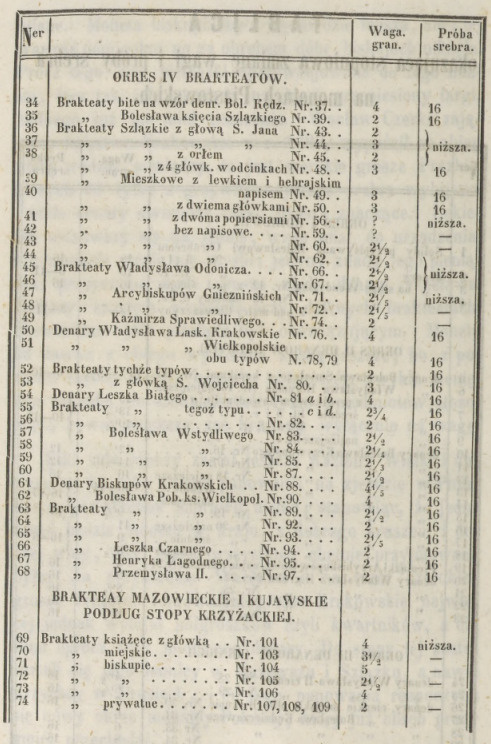 Ner Waga. gran. Próba srebra.
OKRES IV BRAKTEATÓW.
34 Brakteaty bite na wzór denr. Bol. Kędz. Nr. 37. . 4 16
35 „ Bolesława księcia Szlązkiego Nr. 39. . 2 16
36 Brakteaty Szlązkie z głową S. Jana Nr. 43. . 2
37 „ „ „ „ Nr. 44. . 3 niższa.
38 „ „ z orłem Nr. 45. . 2
„ „ z 4 główk. w odcinkach Nr. 48. . 3 16
39 „ Mieszkowe z lewkiem i hebrajskim
40 napisem Nr. 49. . 3 16
„ „ z dwiema główkami Nr. 50. . 3 16
41 „ „ z dwóma popiersiami Nr. 56. . ? niższa.
42 „ „ bez napisowe. . . . Nr. 59. . ? —
43 „ „ „ Nr. 60. . 2½ —
44 „ „ „ Nr. 62. . 2½
45 Brakteaty Władysława Odonicza. . . . Nr. 66. . 2½ niższa.
46 „ „ „ Nr. 67. . 2½
47 „ Arcybiskupów Gnieznińskich Nr. 71. . 2⅕ niższa.
48 „ „ „ Nr. 72. . 2⅕ —
49 „ Kaźmirza Sprawiedliwego. . . Nr. 74. . 2 —
50 Denary Władysława Lask. Krakowskie Nr. 76. . 4 16
51 „ „ „ „ Wielkopolskie
obu typów N. 78,79 4 16
52 Brakteaty tychże typów . . . . . . . . . . . 2 16
53 „ z główką S. Wojciecha Nr. 80. . . . 3 16
54 Denary Leszka Białego . . . . . . . Nr. 81 a i b. 4 16
55 Brakteaty „ tegoż typu . . . . . c i d. 2¾ 16
56 „ „ . . . . . . . Nr. 82. . . . 2 16
57 „ Bolesława Wstydliwego Nr. 83. . . . 2½ 16
58 „ „ „ Nr. 84. . . . 2¼ 16
59 „ „ „ Nr. 85. . . . 2⅓ 16
60 „ „ „ Nr. 87. . . . 2½ 16
61 Denary Biskupów Krakowskich . . Nr. 88. . . . 4⅕ 16
62 „ Bolesława Pob. ks. Wielkopol. Nr. 90. . . . 4 16
63 Brakteaty „ „ Nr. 89. . . . 2½ 16
64 „ „ „ Nr. 92. . . . 2 16
65 „ „ „ Nr. 93. . . . 2⅕ 16
66 „ Leszka Czarnego . . . . . Nr. 94. . . . 2 16
67 „ Henryka Łagodnego. . . Nr. 95. . . . 2 16
68 „ Przemysława II. . . . . . Nr. 97. . . . 2 16
BRAKTEAY MAZOWIECKIE I KUJAWSKIE
PODŁUG STOPY KRZYŻACKIEJ.
69 Brakteaty książęce z główką . . Nr. 101 4 niższa.
70 „ miejskie. . . . . . . . Nr. 103 3½ —
71 „ biskupie. . . . . . . . Nr. 104 5 —
72 „ „ . . . . . . . . Nr. 105 2½ —
73 „ „ . . . . . . . . Nr. 106 4 —
74 „ prywatne . . . . . . . Nr. 107, 108, 109 2 —